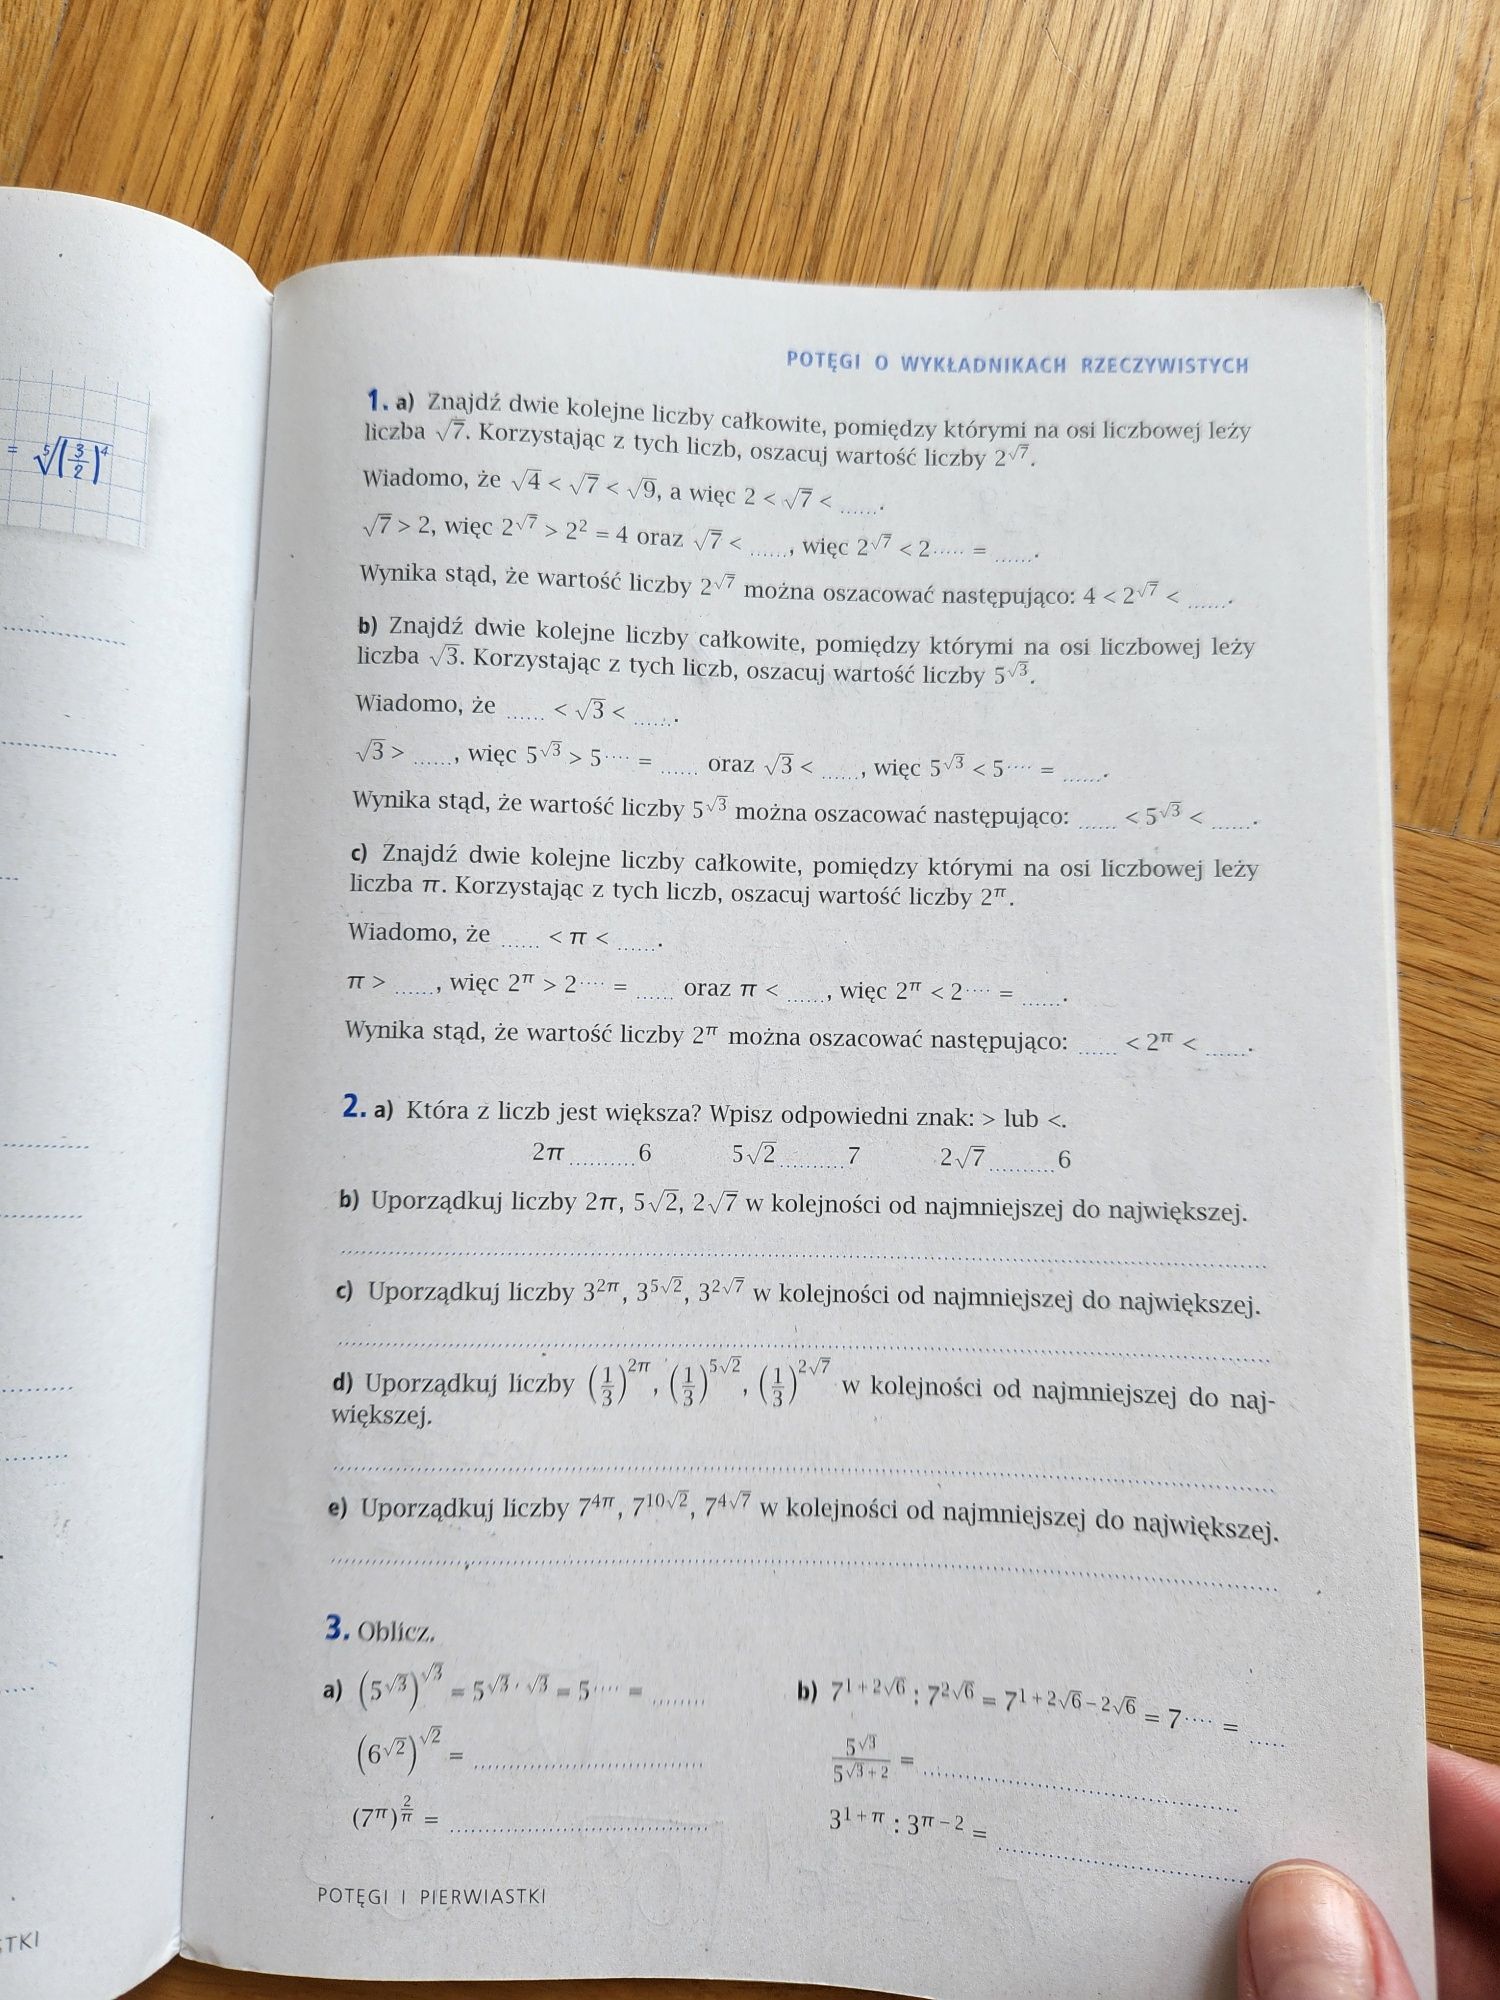 = ⁵√(3/2)⁴
STKI
POTĘGI O WYKŁADNIKACH RZECZYWISTYCH
1. a) Znajdź dwie kolejne liczby całkowite, pomiędzy którymi na osi liczbowej leży
liczba √7. Korzystając z tych liczb, oszacuj wartość liczby 2^√7.
Wiadomo, że √4 < √7 < √9, a więc 2 < √7 < ......
√7 > 2, więc 2^√7 > 2² = 4 oraz √7 < ......, więc 2^√7 < 2^..... = ......
Wynika stąd, że wartość liczby 2^√7 można oszacować następująco: 4 < 2^√7 < ......
b) Znajdź dwie kolejne liczby całkowite, pomiędzy którymi na osi liczbowej leży
liczba √3. Korzystając z tych liczb, oszacuj wartość liczby 5^√3.
Wiadomo, że ...... < √3 < ......
√3 > ......, więc 5^√3 > 5^.... = ...... oraz √3 < ......, więc 5^√3 < 5^.... = ......
Wynika stąd, że wartość liczby 5^√3 można oszacować następująco: ...... < 5^√3 < ......
c) Znajdź dwie kolejne liczby całkowite, pomiędzy którymi na osi liczbowej leży
liczba π. Korzystając z tych liczb, oszacuj wartość liczby 2^π.
Wiadomo, że ...... < π < ......
π > ......, więc 2^π > 2^.... = ...... oraz π < ......, więc 2^π < 2^.... = ......
Wynika stąd, że wartość liczby 2^π można oszacować następująco: ...... < 2^π < ......
2. a) Która z liczb jest większa? Wpisz odpowiedni znak: > lub <.
2π .......... 6 5√2 .......... 7 2√7 .......... 6
b) Uporządkuj liczby 2π, 5√2, 2√7 w kolejności od najmniejszej do największej.
c) Uporządkuj liczby 3^(2π), 3^(5√2), 3^(2√7) w kolejności od najmniejszej do największej.
d) Uporządkuj liczby (1/3)^(2π), (1/3)^(5√2), (1/3)^(2√7) w kolejności od najmniejszej do naj-
większej.
e) Uporządkuj liczby 7^(4π), 7^(10√2), 7^(4√7) w kolejności od najmniejszej do największej.
3. Oblicz.
a) (5^√3)^√3 = 5^(√3 · √3) = 5^.... = ........
(6^√2)^√2 = ..............................
(7^π)^(2/π) = ..............................
b) 7^(1+2√6) : 7^(2√6) = 7^(1+2√6−2√6) = 7^.... = .....
5^√3 / 5^(√3+2) = ..............................
3^(1+π) : 3^(π−2) = ..............................
POTĘGI I PIERWIASTKI